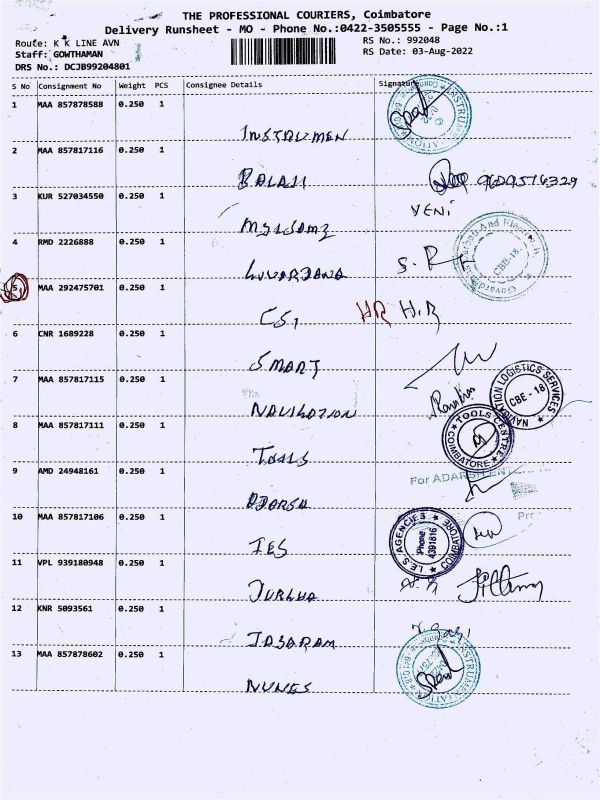 THE PROFESSIONAL COURIERS, Coimbatore
Delivery Runsheet - MO - Phone No.:0422-3505555 - Page No.:1
Route: K K LINE AVN
RS No.: 992048
Staff: GOWTHAMAN
RS Date: 03-Aug-2022
DRS No.: DCJB99204801
S No Consignment No Weight PCS Consignee Details Signature
1 MAA 857878588 0.250 1
INSTRUMEN
2 MAA 857817116 0.250 1
BALAJI 9629576329
3 KUR 527034550 0.250 1
VENI
4 RMD 2226888 0.250 1
S. R
CBE-18.
5 MAA 292475701 0.250 1
CSI HR H.R
6 CNR 1689228 0.250 1
SMART
7 MAA 857817115 0.250 1
NAVIGATION
NAVIGATION LOGISTICS SERVICES
CBE - 18
8 MAA 857817111 0.250 1
TOOLS
TOOLS CENTRE
COIMBATORE
9 AMD 24948161 0.250 1
For ADARSH
ADARSH
10 MAA 857817106 0.250 1
IES
I.E.S. AGENCIES COIMBATORE
Phone
4391816
11 VPL 939180948 0.250 1
12 KNR 5093561 0.250 1
JASARAM
13 MAA 857878602 0.250 1
NUNES